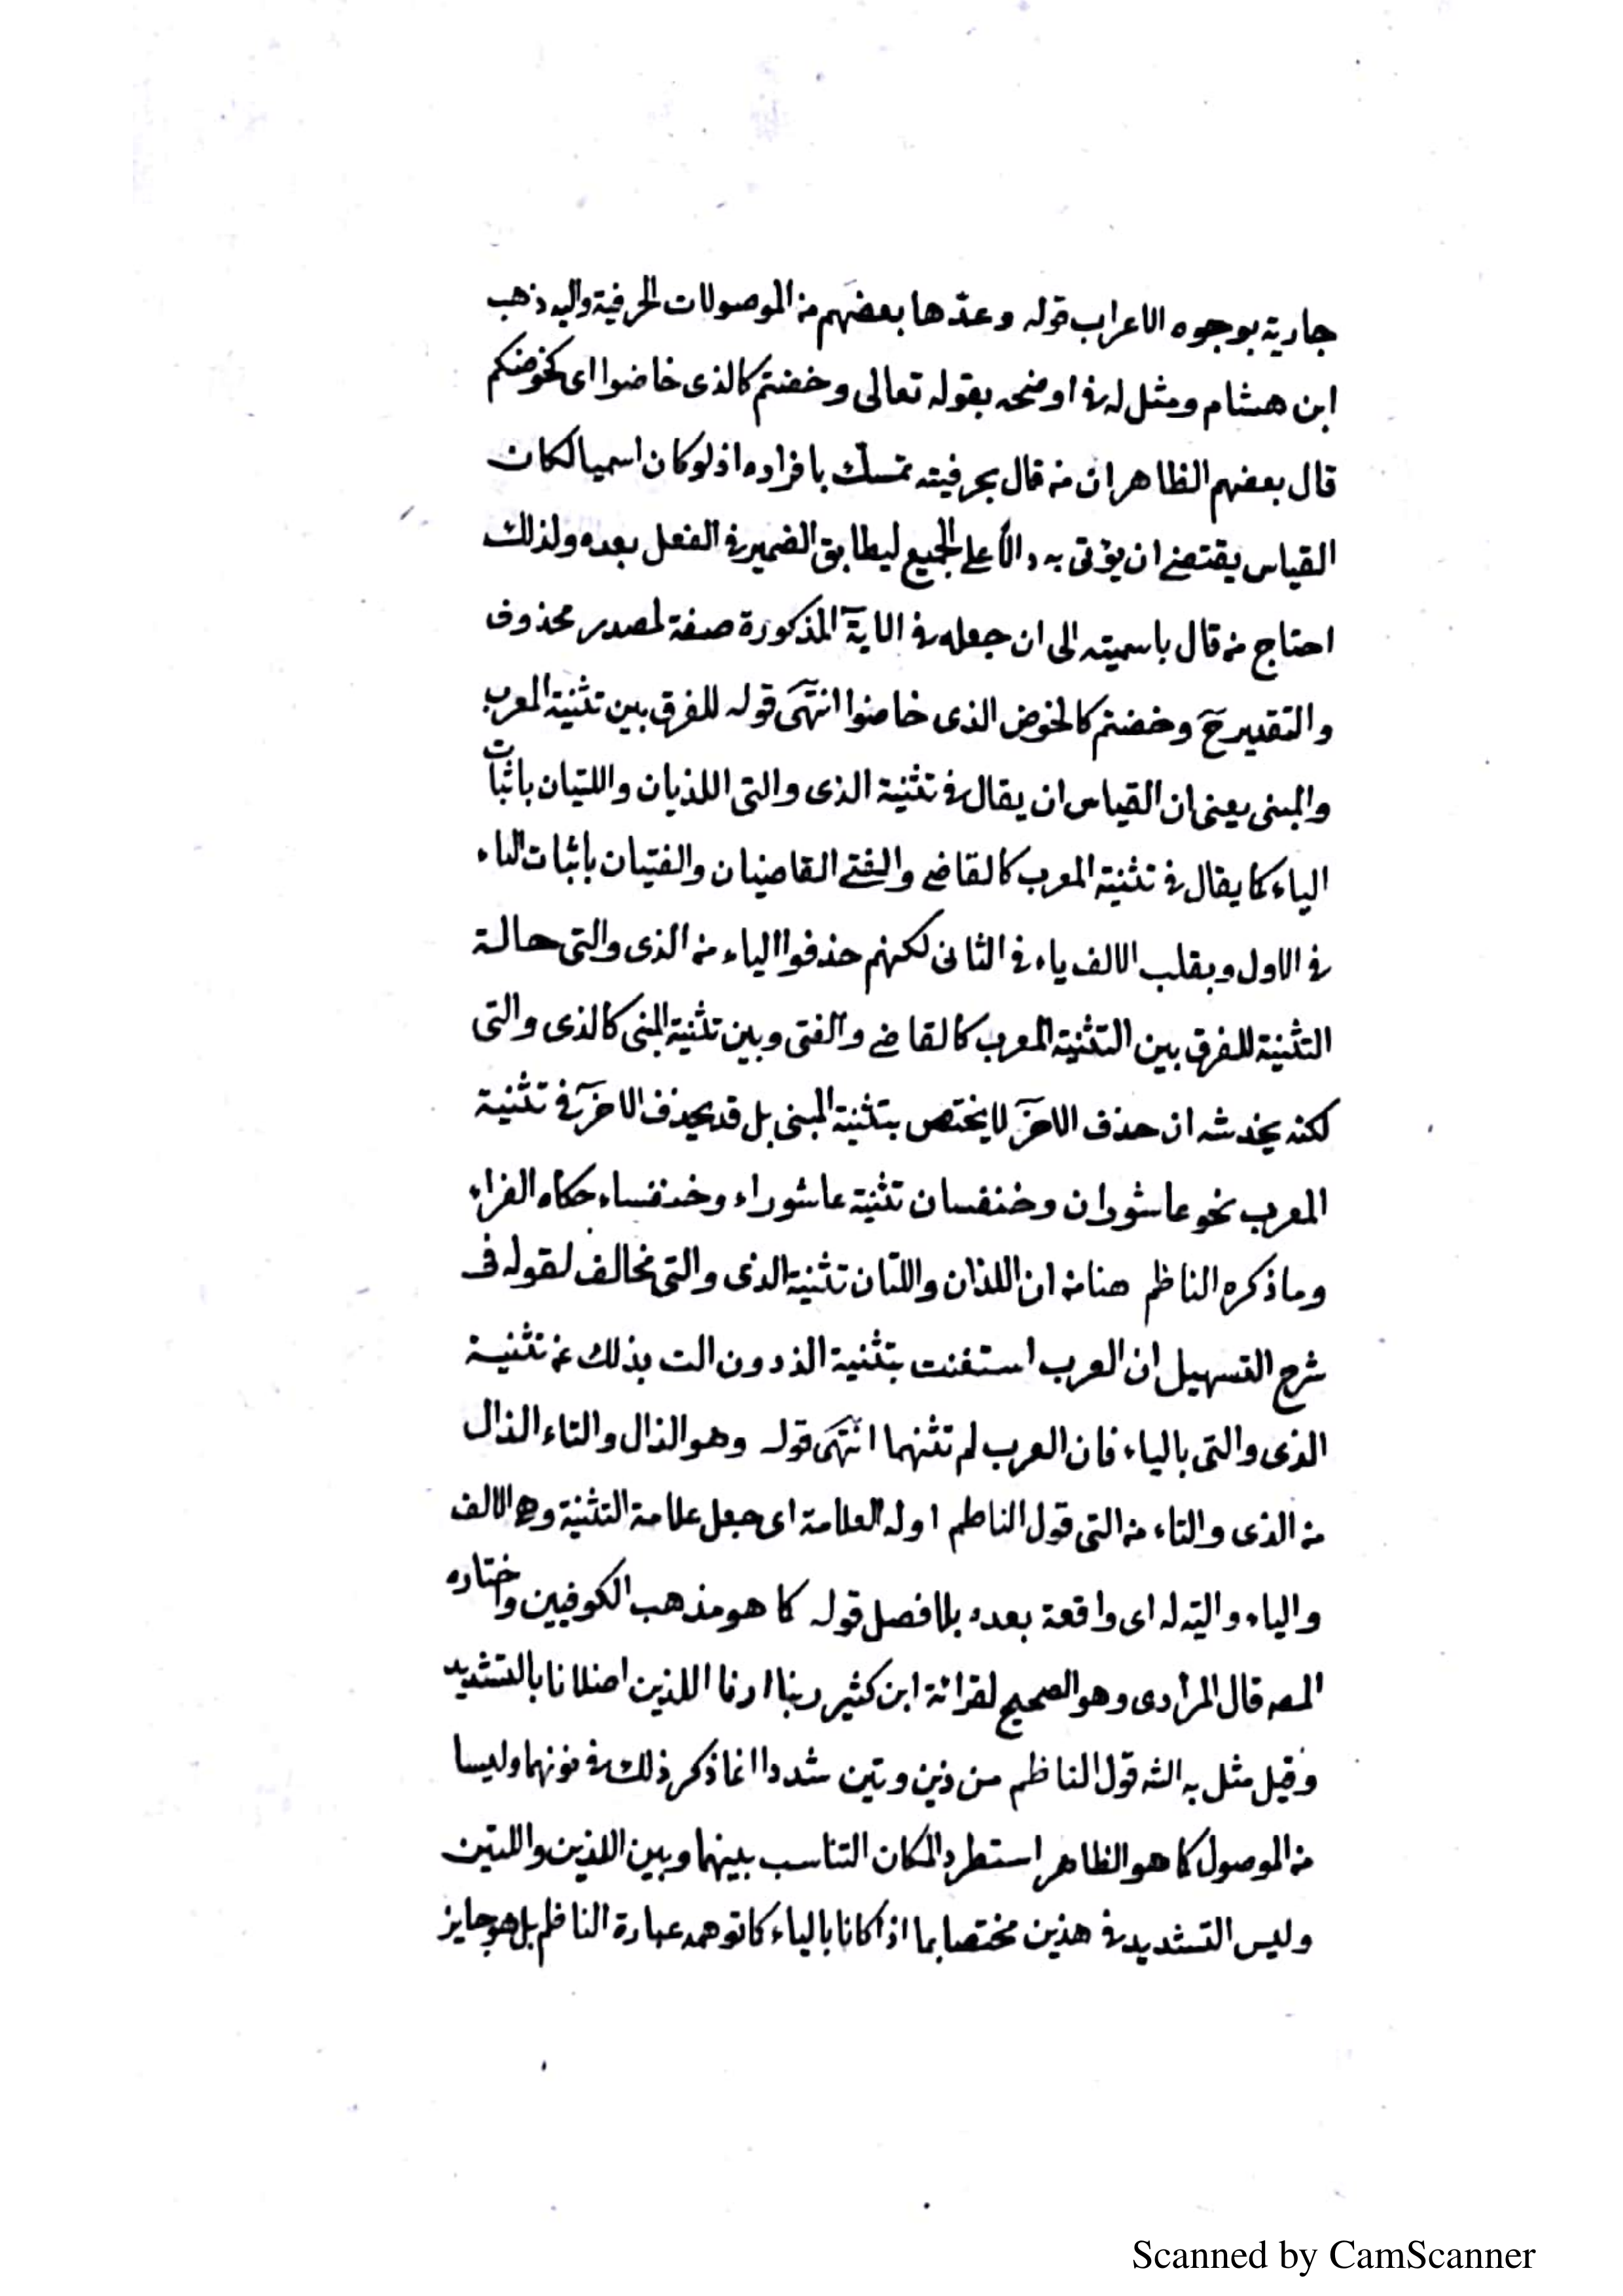 جارية بوجوه الاعراب قوله وعدّها بعضهم من الموصولات الحرفية واليه ذهب
ابن هشام ومثل له في اوضحه بقوله تعالى وخضتم كالذى خاضوا اى كخوضكم
قال بعضهم الظاهر ان من قال بحرفيته تمسك بافراده اذ لو كان اسميا لكان
القياس يقتضى ان يؤتى به دالا على الجميع ليطابق الضمير في الفعل بعده ولذلك
احتاج من قال باسميته الى ان جعله في الاية المذكورة صفة لمصدر محذوف
والتقدير ح وخضتم كالخوض الذى خاضوا انتهى قوله للفرق بين تثنية المعرب
والمبنى يعنى ان القياس ان يقال في تثنية الذى والتى اللذيان واللتيان باثبات
الياء كما يقال في تثنية المعرب كالقاضى والفتى القاضيان والفتيان باثبات الياء
في الاول وبقلب الالف ياء في الثانى لكنهم حذفوا الياء من الذى والتى حالة
التثنية للفرق بين التثنية المعرب كالقاضى والفتى وبين تثنية المبنى كالذى والتى
لكنه يخدشه ان حذف الاخر لا يختص بتثنية المبنى بل قد يحذف الاخر في تثنية
المعرب نحو عاشوران وخنفسان تثنية عاشوراء وخنفساء حكاه الفراء
وما ذكره الناظم هنا من ان اللذان واللتان تثنية الذى والتى مخالف لقوله فى
شرح التسهيل ان العرب استغنت بتثنية الذ دون الت بذلك عن تثنية
الذى والتى بالياء فان العرب لم تثنهما انتهى قوله وهو الذال والتاء الذال
من الذى والتاء من التى قول الناظم اوله العلامة اى جعل علامة التثنية وهى الالف
والياء والته له اى واقعة بعده بلا فصل قوله كما هو مذهب الكوفيين واختاره
المصه قال المرادى وهو الصحيح لقرائة ابن كثير ربنا ارنا اللذين اضلانا بالتشديد
وقيل مثل به الشه قول الناظم من ذين وتين شددا انما ذكر ذلك في نونهما وليسا
من الموصول كما هو الظاهر استطرد المكان التناسب بينهما وبين اللذين واللتين
وليس التشديد في هذين مختصا بما اذا كانا بالياء كما توهمه عبارة الناظم بل هو جايز
Scanned by CamScanner